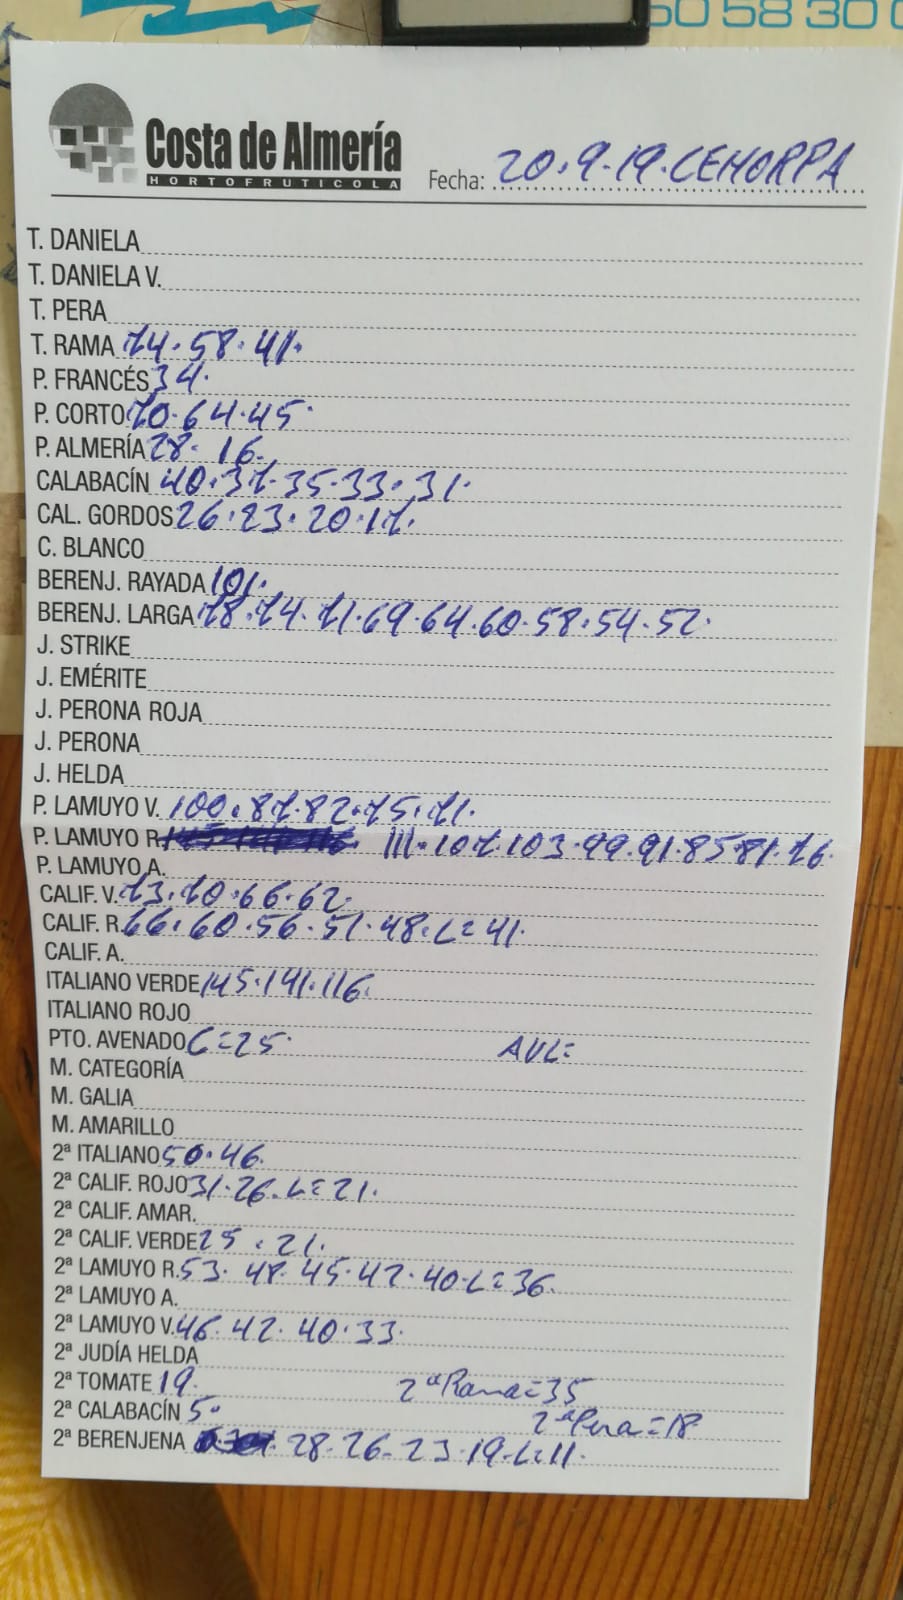 50 58 30 0
Costa de Almería
HORTOFRUTICOLA
Fecha: 20.9.19.CEHORPA
T. DANIELA
T. DANIELA V.
T. PERA
T. RAMA 74.58.41.
P. FRANCÉS 34.
P. CORTO 70.64.45.
P. ALMERÍA 28. 16.
CALABACÍN 40.37.35.33.31.
CAL. GORDOS 26.23.20.17.
C. BLANCO
BERENJ. RAYADA 101.
BERENJ. LARGA 78.74.71.69.64.60.58.54.52.
J. STRIKE
J. EMÉRITE
J. PERONA ROJA
J. PERONA
J. HELDA
P. LAMUYO V. 100.87.82.75.71.
P. LAMUYO R. 111.107.103.99.91.85.81.76
P. LAMUYO A.
CALIF. V. 73.70.66.62.
CALIF. R. 66.60.56.51.48.L=41.
CALIF. A.
ITALIANO VERDE 145.141.116.
ITALIANO ROJO
PTO. AVENADO C=25. AVL=
M. CATEGORÍA
M. GALIA
M. AMARILLO
2ª ITALIANO 50.46.
2ª CALIF. ROJO 31.26.L=21.
2ª CALIF. AMAR.
2ª CALIF. VERDE 25.21.
2ª LAMUYO R. 53.48.45.42.40.L=36.
2ª LAMUYO A.
2ª LAMUYO V. 46.42.40.33.
2ª JUDÍA HELDA
2ª TOMATE 19. 2ª Rama=35
2ª CALABACÍN 5. 2ª Pera=18
2ª BERENJENA 28.26.23.19.L=11.